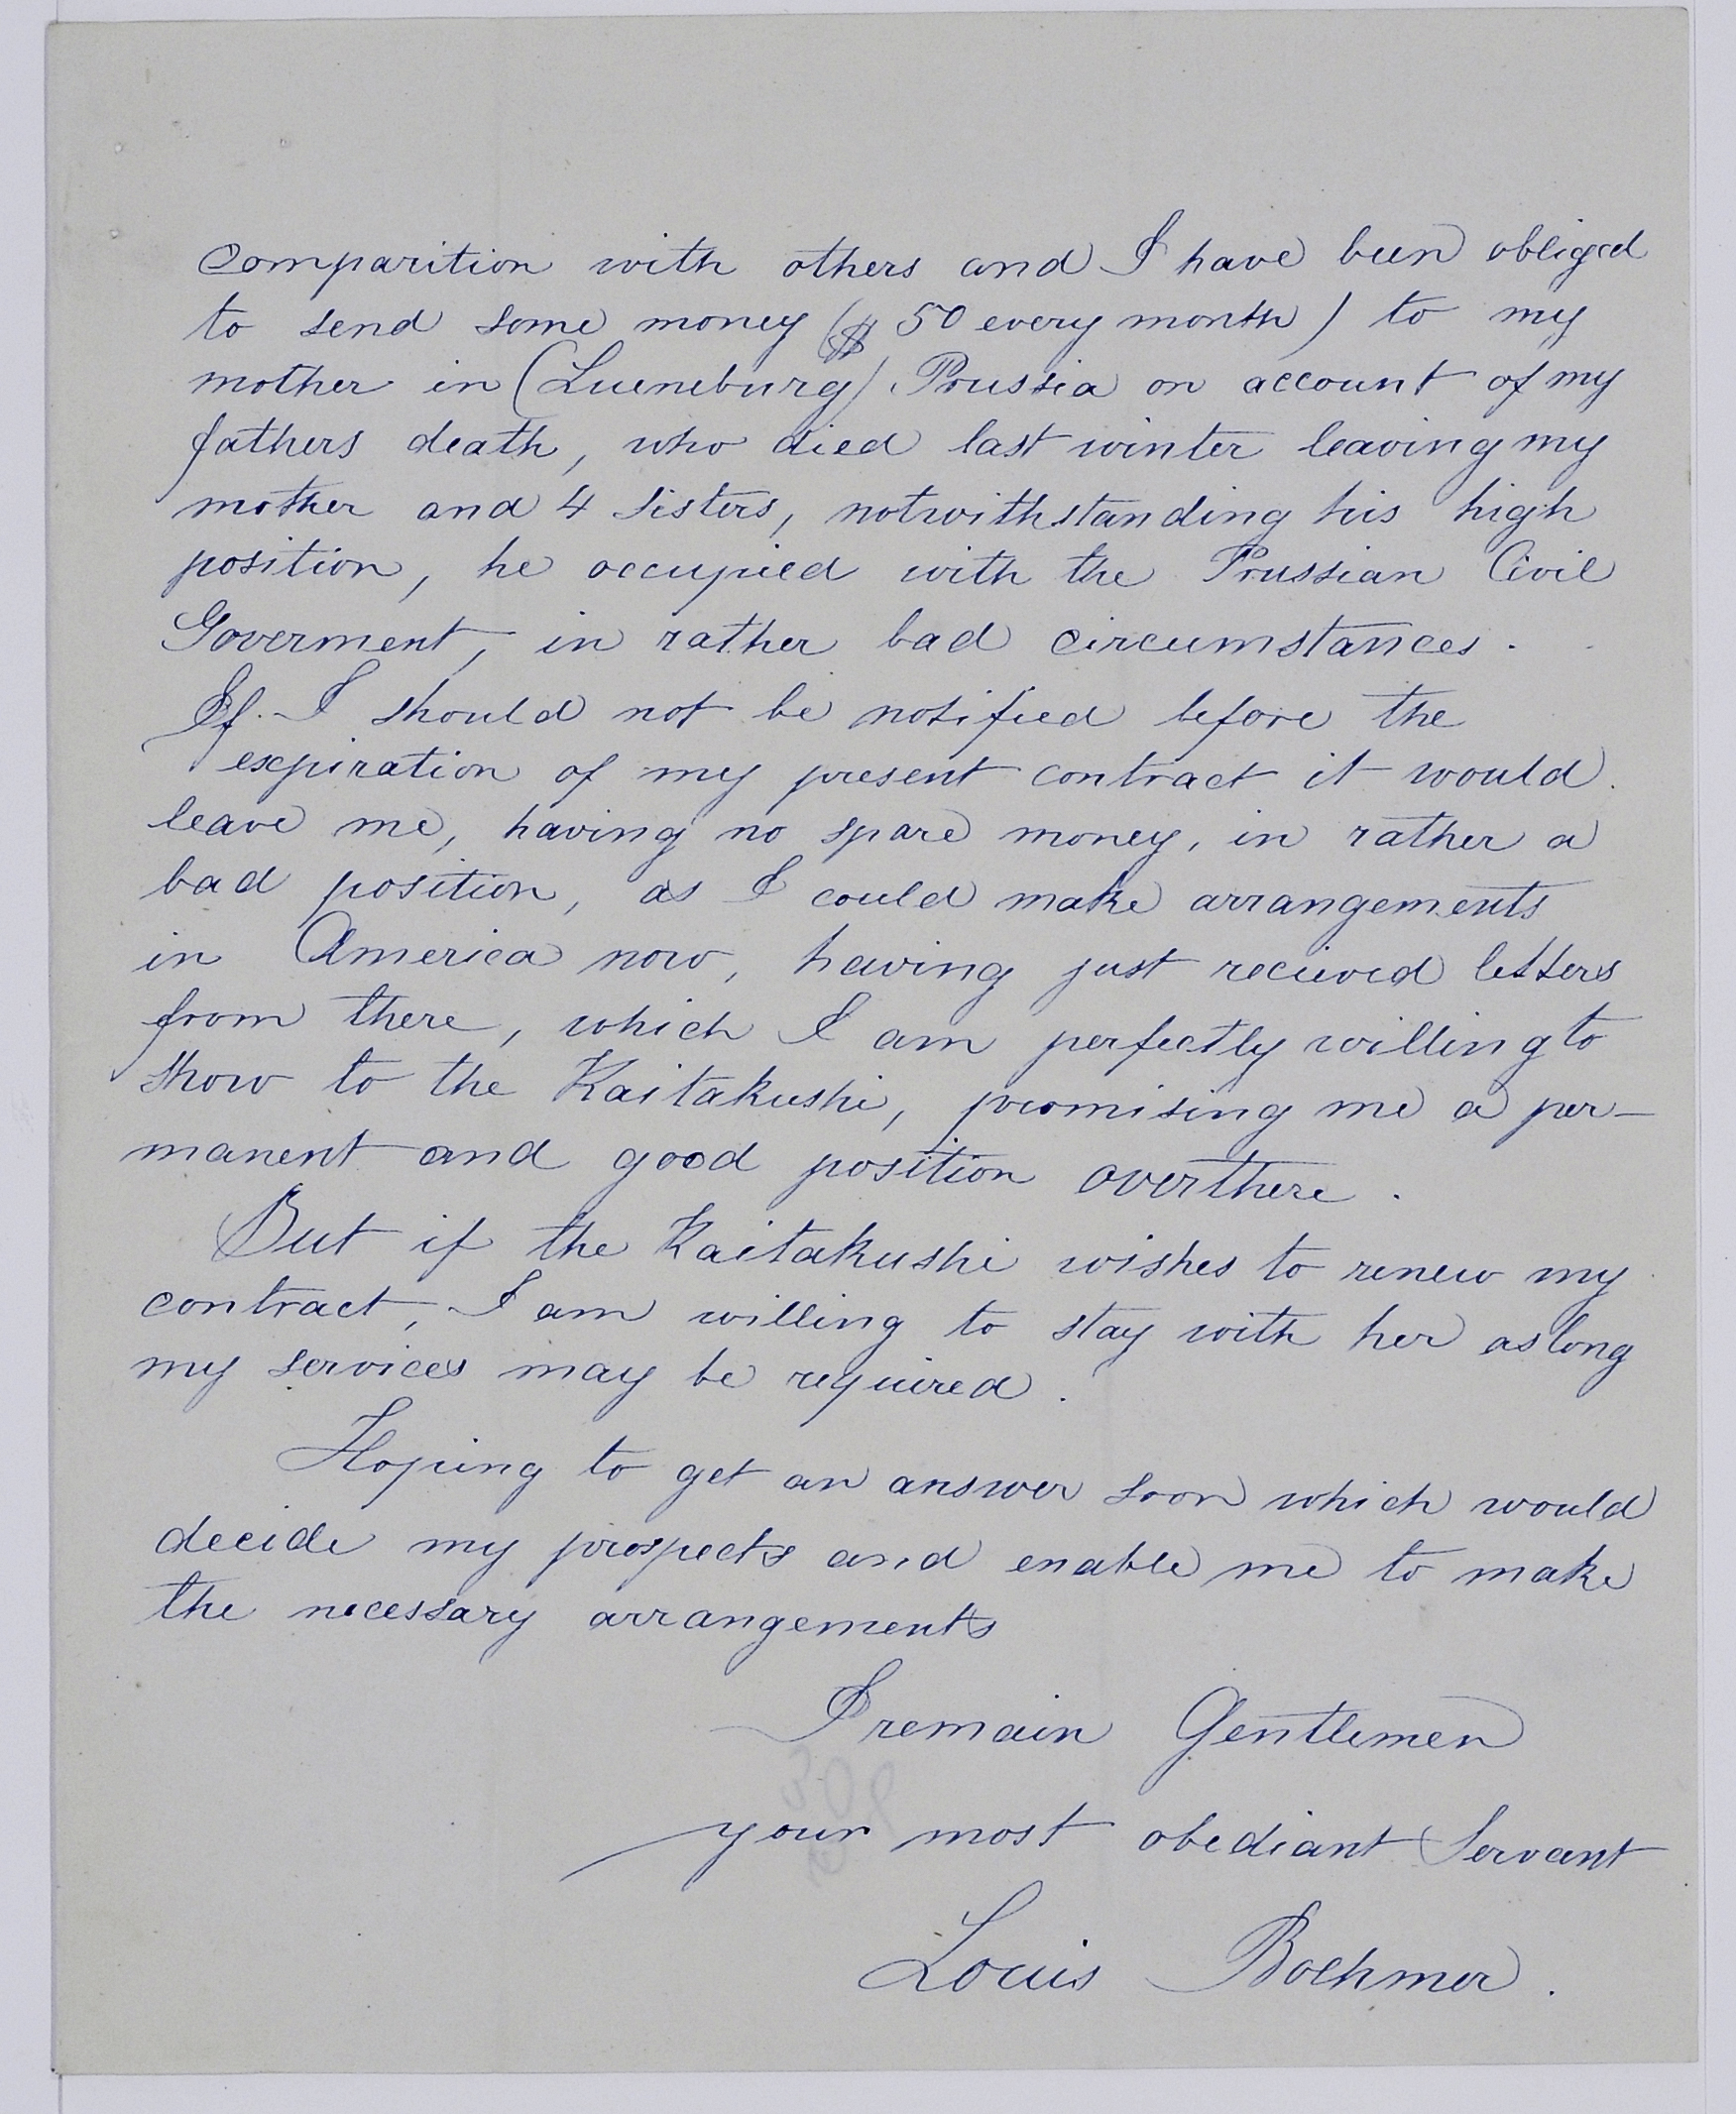 comparition with others and I have been obliged
to send some money ($ 50 every month) to my
mother in (Lueneburg) Prussia on account of my
fathers death, who died last winter leaving my
mother and 4 sisters, notwithstanding his high
position, he occupied with the Prussian Civil
Goverment, in rather bad circumstances.
If I should not be notified before the
expiration of my present contract it would
leave me, having no spare money, in rather a
bad position, as I could make arrangements
in America now, having just recieved letters
from there, which I am perfectly willing to
show to the Kaitakushi, promising me a per-
manent and good position overthere.
But if the Kaitakushi wishes to renew my
contract, I am willing to stay with her as long
my services may be required.
Hoping to get an answer soon which would
decide my prospects and enable me to make
the necessary arrangements
I remain Gentlemen
your most obediant Servant
Louis Boehmer.